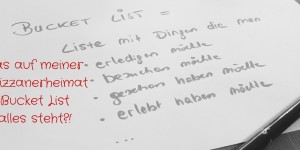 BUCKET LIST =
Liste mit Dingen die man
• erledigen möchte
• besuchen möchte
• gesehen haben möchte
• erlebt haben möchte
...
as auf meiner
izzanerheimat
Bucket List
alles steht?!